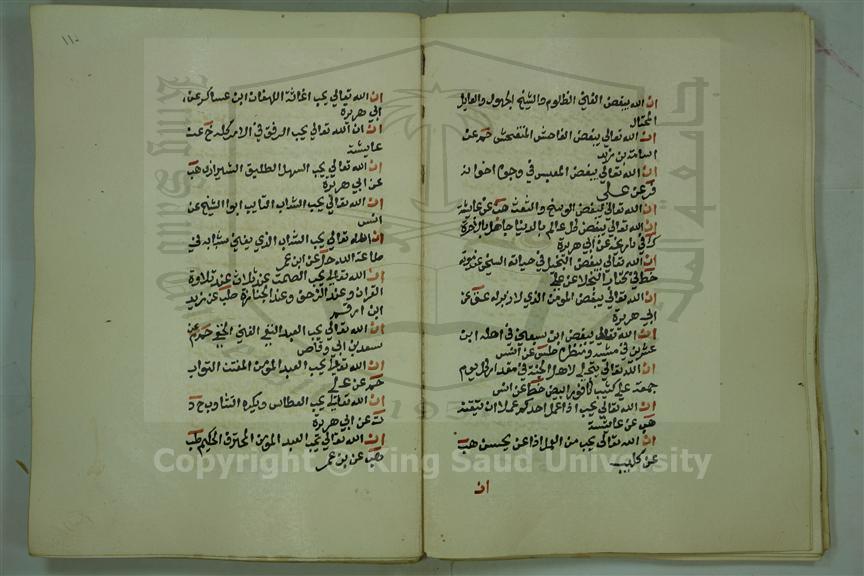 ان الله يبغض الغني الظلوم والشيخ الجهول والعايل
المختال
ان الله تعالى يبغض الفاحش المتفحش حم عن
اسامة بن زيد
ان الله تعالى يبغض المعبس في وجوه اخوانه
فر عن علي
ان الله تعالى يبغض الوسخ والشعث هب عن عايشة
ان الله تعالى يبغض كل عالم بالدنيا جاهل بالاخرة
ك في تاريخه عن ابي هريرة
ان الله تعالى يبغض البخيل في حياته السخي عند موته
خط في كتاب البخلا عن علي
ان الله تعالى يبغض المومن الذي لا زبر له عق عن
ابي هريرة
ان الله تعالى يبغض ابن سبعين في اهله ابن
عشرين في مشيه ومنظره طس عن انس
ان الله تعالى يتجلى لاهل الجنة في مقدار كل يوم
جمعة على كثيب كافور ابيض خط عن انس
ان الله تعالى يحب اذا عمل احدكم عملا ان يتقنه
هب عن عايشة
ان الله تعالى يحب من العامل اذا عمل ان يحسن هب
عن كليب
ان
١١٠
ان الله تعالى يحب اغاثة اللهفان ابن عساكر عن
ابي هريرة
ان الله تعالى يحب الرفق في الامر كله خ عن
عايشة
ان الله تعالى يحب السهل الطليق الشيرازي هب
عن ابي هريرة
ان الله تعالى يحب الشاب التايب ابو الشيخ عن
انس
ان الله تعالى يحب الشاب الذي يفني شبابه في
طاعة الله حل عن ابن عمر
ان الله تعالى يحب الصمت عند ثلاث عند تلاوة
القران وعند الزحف وعند الجنازة طب عن زيد
ابن ارقم
ان الله تعالى يحب العبد التقي الغني الخفي حم م عن
سعد بن ابي وقاص
ان الله تعالى يحب العبد المومن المفتن التواب
حم عن علي
ان الله تعالى يحب العطاس ويكره التثاوب خ د
ت عن ابي هريرة
ان الله تعالى يحب العبد المومن المحترف الحكيم طب
هب عن بن عمر
جامعة الملك سعود
King Saud University
1957
Copyright © King Saud University